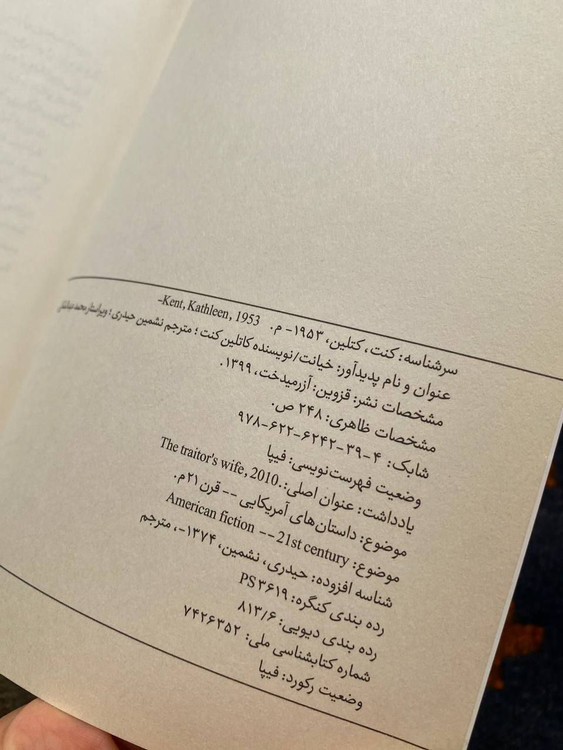 سرشناسه: کنت، کتلین، ۱۹۵۳- م. Kent, Kathleen, 1953-
عنوان و نام پدیدآور: خیانت/نویسنده کاتلین کنت؛ مترجم نشمین حیدری؛ ویراستار محمد
مشخصات نشر: قزوین: آزرمیدخت، ۱۳۹۹.
مشخصات ظاهری: ۲۴۸ ص.
شابک: ۹۷۸-۶۲۲-۶۲۴۲-۳۹-۴
وضعیت فهرست‌نویسی: فیپا
یادداشت: عنوان اصلی: The traitor's wife, 2010.
موضوع: داستان‌های آمریکایی -- قرن ۲۱ م.
موضوع: American fiction -- 21st century
شناسه افزوده: حیدری، نشمین، ۱۳۷۴-، مترجم
رده بندی کنگره: PS۳۶۱۹
رده بندی دیویی: ۸۱۳/۶
شماره کتابشناسی ملی: ۷۴۲۶۳۵۲
وضعیت رکورد: فیپا